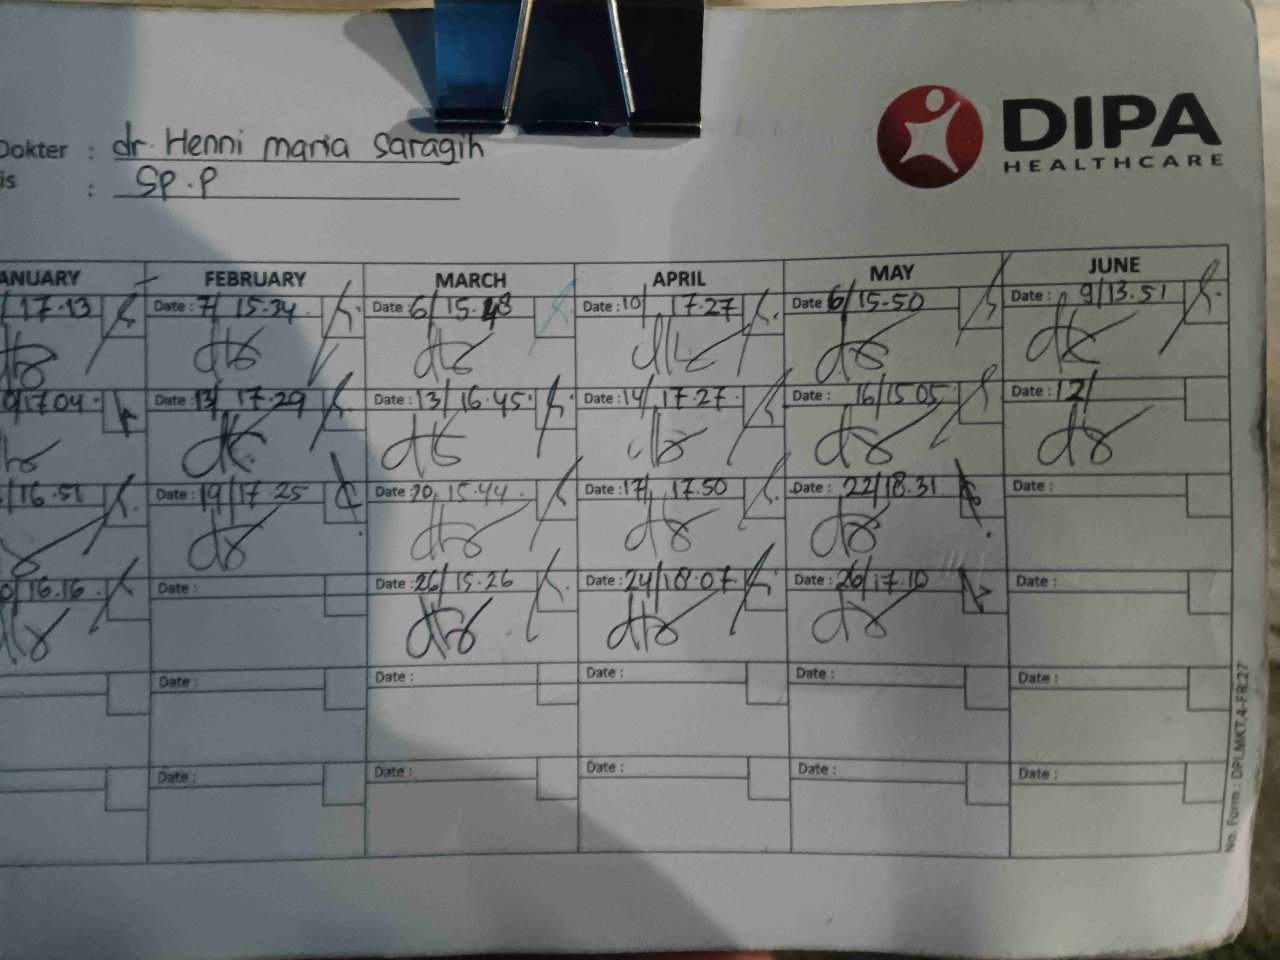 DIPA
HEALTHCARE
Dokter : dr. Henni maria Saragih
is : SP.P
ANUARY FEBRUARY MARCH APRIL MAY JUNE
/17.13 Date : 7/ 15.34 Date : 6/ 15.48 Date : 10/ 17.27 Date 6/15-50 Date : 9/13.51
/17.04 Date : 13/ 17.29 Date : 13/ 16.45 Date : 14/ 17.27 Date : 16/15 05 Date : 12/
/16.51 Date : 19/17.25 Date : 20, 15.44 Date : 17/ 17.50 Date : 22/18.31 Date :
/16.16 Date : Date : 26/ 15.26 Date : 24/18.07 Date : 26/17.10 Date :
Date : Date : Date : Date : Date :
Date : Date : Date : Date : Date :
No. Form : DPI.MKT.4-FR.27